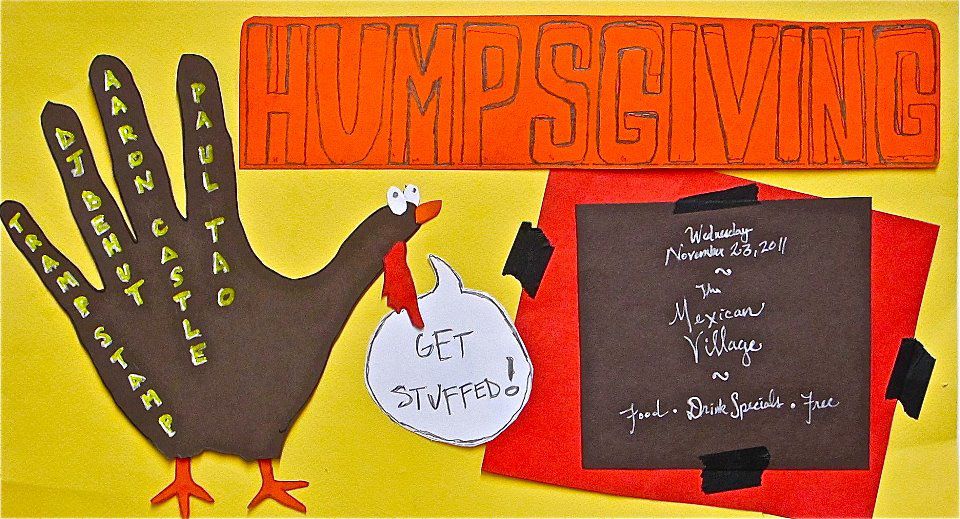 HUMPSGIVING
TRAMP STAMP
DJ BEHUT
AARON CASTLE
PAUL TAO
GET
STUFFED!
Wednesday
November 23, 2011
~
The
Mexican
Village
~
Food • Drink Specials • Free